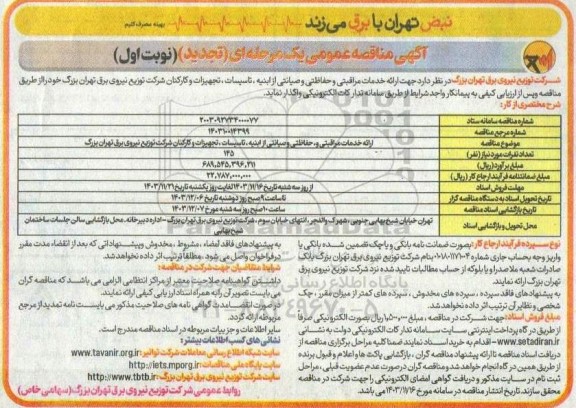 نبض تهران با برق می‌زند
بهینه مصرف کنیم
آگهی مناقصه عمومی یک مرحله ای (تجدید) (نوبت اول)
شرکت توزیع نیروی برق تهران بزرگ در نظر دارد جهت ارائه خدمات مراقبتی و حفاظتی و صیانتی از ابنیه، تاسیسات، تجهیزات و کارکنان شرکت توزیع نیروی برق تهران بزرگ خود را از طریق
مناقصه و پس از ارزیابی کیفی به پیمانکار واجد شرایط از طریق سامانه تدارکات الکترونیکی واگذار نماید.
شرح مختصری از کار:
شماره مناقصه سامانه ستاد
شماره مرجع مناقصه ۱۴۰۳۱۰۱۴۳۹۹
موضوع مناقصه ارائه خدمات مراقبتی و، حفاظتی و صیانتی از ابنیه، تاسیسات، تجهیزات و کارکنان شرکت توزیع نیروی برق تهران بزرگ
تعداد نفرات مورد نیاز (نفر) ۱۴۵
مبلغ برآورد (ریال) ۶۸۹,۵۴۵,۳۹۶,۲۱۱
مبلغ ضمانتنامه فرآیند ارجاع کار (ریال) ۲۲,۷۸۷,۰۰۰,۰۰۰
مهلت فروش اسناد از روز سه شنبه تاریخ ۱۴۰۳/۱۱/۱۶ لغایت روز یکشنبه تاریخ ۱۴۰۳/۱۱/۲۱
تاریخ تحویل اسناد به دستگاه مناقصه گزار تا ساعت ۹ صبح روز دوشنبه تاریخ ۱۴۰۳/۱۲/۰۶
تاریخ بازگشایی اسناد مناقصه ساعت ۱۰ صبح روز سه شنبه مورخ ۱۴۰۳/۱۲/۰۷
محل تحویل و بازگشایی اسناد تهران خیابان شیخ بهایی جنوبی، شهرک والفجر، انتهای خیابان سوم، شرکت توزیع نیروی برق تهران بزرگ - اداره دبیرخانه. محل بازگشایی سالن جلسات ساختمان
شیخ بهایی
نوع سپرده فرآیند ارجاع کار: بصورت ضمانت نامه بانکی و یا چک تضمین شده بانکی یا
واریز وجه بحساب جاری شماره بنام شرکت توزیع نیروی برق تهران بزرگ بانک
صادرات شعبه ملاصدرا و یا بلوکه از حساب مطالبات تایید شده نزد شرکت توزیع نیروی برق
تهران بزرگ ارائه نمایند.
به پیشنهادهای فاقد سپرده، سپرده های مخدوش، سپرده های کمتر از میزان مقرر، چک
شخصی و نظایر آن ترتیب اثر داده نخواهد شد.
مبلغ فروش اسناد: جهت شرکت در مناقصه، مبلغ ریال بصورت الکترونیکی صرفاً
از طریق درگاه پرداخت اینترنتی سایت سامانه تدارکات الکترونیکی دولت به نشانی
www.setadiran.ir- اقدام به خرید اسناد نمایند ضمناً کلیه مراحل برگزاری مناقصه از
دریافت اسناد مناقصه تا ارائه پیشنهاد مناقصه گران، بازگشایی پاکت ها و اعلام و قبول برنده
از طریق همین درگاه انجام خواهد شد و مناقصه گران در صورت عدم عضویت قبلی، مراحل
ثبت نام در سایت مذکور و دریافت گواهی امضای الکترونیکی را جهت شرکت در مناقصه
محقق سازند. تاریخ انتشار مناقصه در سامانه مورخ ۱۴۰۳/۱۱/۱۶ می باشد.
به پیشنهادهای فاقد امضاء، مشروط، مخدوش و پیشنهاداتی که بعد از انقضاء مدت مقرر
در فراخوان واصل می شود، مطلقا ترتیب اثر داده نخواهد شد.
شرایط متقاضیان جهت شرکت در مناقصه:
داشتن گواهینامه صلاحیت معتبر از مراکز انتظامی الزامی می باشد که مناقصه گران
می بایست تصویر آن را به همراه اسناد ارزیابی کیفی ارائه نمایند.
در صورت انقضاء مدت گواهی نامه های صلاحیت مذکور می بایست نامه تمدید از مرجع
مربوطه ارائه گردد.
سایر اطلاعات و جزییات مربوطه در اسناد مناقصه مندرج است.
نشانی های کسب اطلاعات بیشتر:
سایت شبکه اطلاع رسانی معاملات شرکت توانیر: www.tavanir.org.ir
سایت پایگاه ملی مناقصات: http://iets.mporg.ir
سایت شرکت توزیع نیروی برق تهران بزرگ: http://www.tbtb.ir
روابط عمومی شرکت توزیع نیروی برق تهران بزرگ (سهامی خاص)